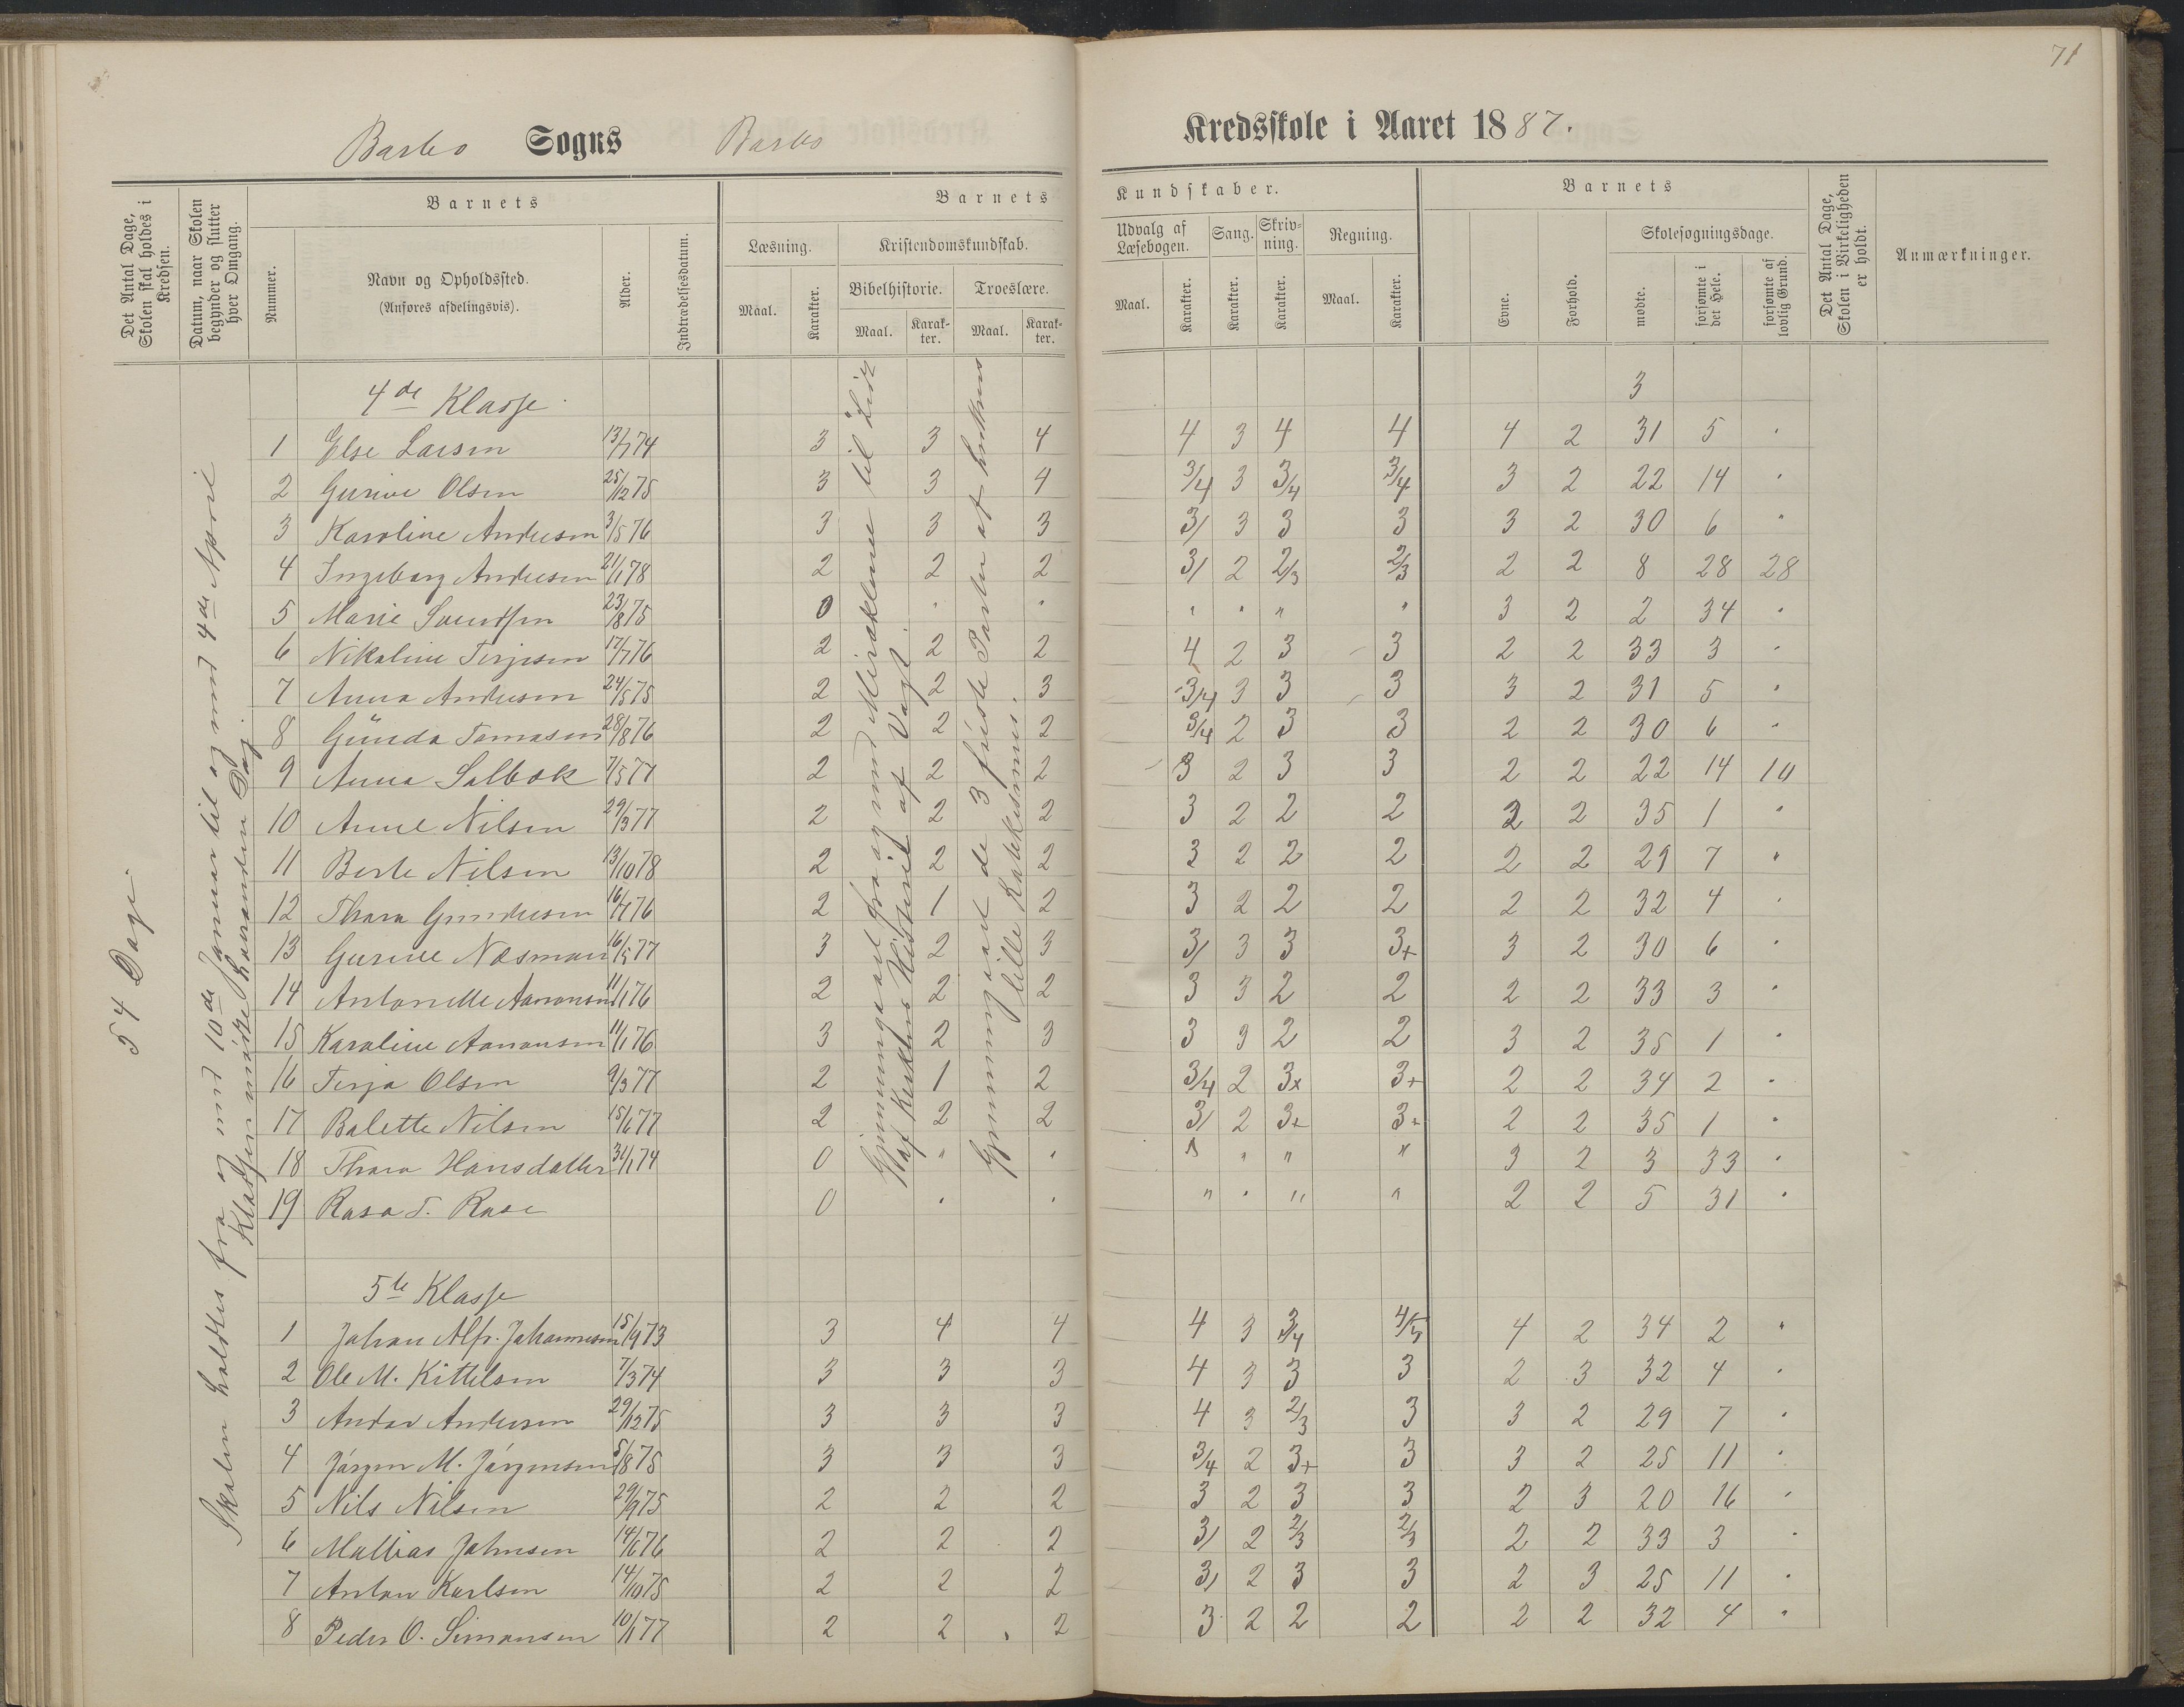 71
Barbo Sogns Barbo Kredsskole i Aaret 1887.
Det Antal Dage, Skolen skal holdes i Kredsen.
Datum, naar Skolen begynder og slutter hver Omgang.
Barnets
Nummer.
Navn og Opholdssted.
(Anføres afdelingsvis).
Alder.
Indtrædelsesdatum.
Barnets Kundskaber.
Læsning.
Maal.
Karakter.
Kristendomskundskab.
Bibelhistorie.
Maal.
Karakter.
Troeslære.
Maal.
Karakter.
Udvalg af Læsebogen.
Maal.
Karakter.
Sang.
Karakter.
Skrivning.
Karakter.
Regning.
Maal.
Karakter.
Barnets
Evne.
Forhold.
Skolesøgningsdage.
mødte.
forsømte i det Hele.
forsømte af lovlig Grund.
Det Antal Dage, Skolen i Virkeligheden er holdt.
Anmærkninger.
54 Dage.
Skolen holdtes fra og med 10de Januar til og med 4de April
Klassen mødte hveranden Dag.
Gjennemgaaet fra og med Miraklerne til
af Vogt.
Gjennemgaaet de 3 første Parter af
lille Katekismus.
4de Klasse 3
1 Else Larsen 13/7 74 3 3 4 4 3 4 4 4 2 31 5 "
2 Gurine Olsen 25/12 75 3 3 4 3/4 3 3/4 3/4 3 2 22 14 "
3 Karoline Andersen 3/5 76 3 3 3 3/ 3 3 3 3 2 30 6 "
4 Ingeborg Andersen 21/1 78 2 2 2 3/ 2 2/3 2/3 2 2 8 28 28
5 Marie Svendsen 23/8 75 0 " " " " " " 3 2 2 34 "
6 Nikoline Terjesen 17/7 76 2 2 2 4 2 3 3 2 2 33 3 "
7 Anna Andersen 24/5 75 2 2 3 3/4 3 3 3 3 2 31 5 "
8 Gunda Tomasen 28/8 76 2 2 2 3/4 2 3 3 2 2 30 6 "
9 Anna Solbæk 7/5 77 2 2 2 3 2 3 3 2 2 22 14 10
10 Anne Nilsen 29/3 77 2 2 2 3 2 2 2 2 2 35 1 "
11 Berte Nilsen 13/10 78 2 2 2 3 2 2 2 2 2 29 7 "
12 Thora Gundersen 16/7 76 2 1 2 3 2 2 2 2 2 32 4 "
13 Gurine Næsman 16/5 77 3 2 3 3/ 3 3 3+ 3 2 30 6 "
14 Antonette Aanonsen 11/1 76 2 2 2 3 3 2 2 2 2 33 3 "
15 Karoline Aanonsen 11/1 76 3 2 3 3 3 2 2 3 2 35 1 "
16 Terja Olsen 9/3 77 2 1 2 3/4 2 3+ 3+ 2 2 34 2 "
17 Balette Nilsen 15/6 77 2 2 2 3/ 2 3+ 3+ 2 2 35 1 "
18 Thora Hansdatter 31/1 74 0 " " " " " " 3 2 3 33 "
19 Rasa T. Rase 0 " " " " " " 2 2 5 31 "
5te Klasse
1 Johan Alfr. Johannesen 15/9 73 3 4 4 4 3 3/4 4/5 4 2 34 2 "
2 Ole M. Kittelsen 7/3 74 3 3 3 4 3 3 3 2 3 32 4 "
3 Andor Andersen 29/12 75 3 3 3 4 3 2/3 3 3 2 29 7 "
4 Jørgen M. Jørgensen 5/8 75 3 3 3 3/4 2 3+ 3 3 2 25 11 "
5 Nils Nilsen 29/9 75 2 2 2 3 2 3 3 2 3 20 16 "
6 Mathias Johnsen 14/6 76 2 2 2 3/ 2 2/3 2/3 2 2 33 3 "
7 Anton Karlsen 14/10 75 2 2 2 3/ 2 3 3 2 3 25 11 "
8 Peder O. Simonsen 10/1 77 2 2 2 3 2 2 2 2 2 32 4 "